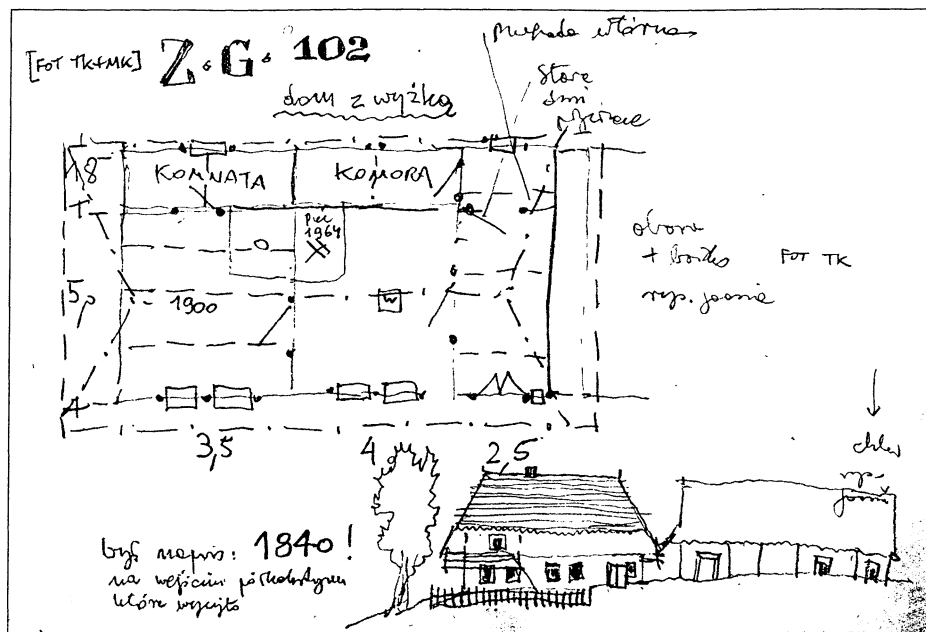 [FOT TK+MK] Z.G. 102
dom z wyżką
wtórna
Stare
drzwi
1,8
KOMNATA
KOMORA
piec
1964
obora
+ FOT TK
5,0
1900
W
1,4
3,5 4 2,5
chlew
był napis: 1840!
na wejściu półkolistym
które wycięto